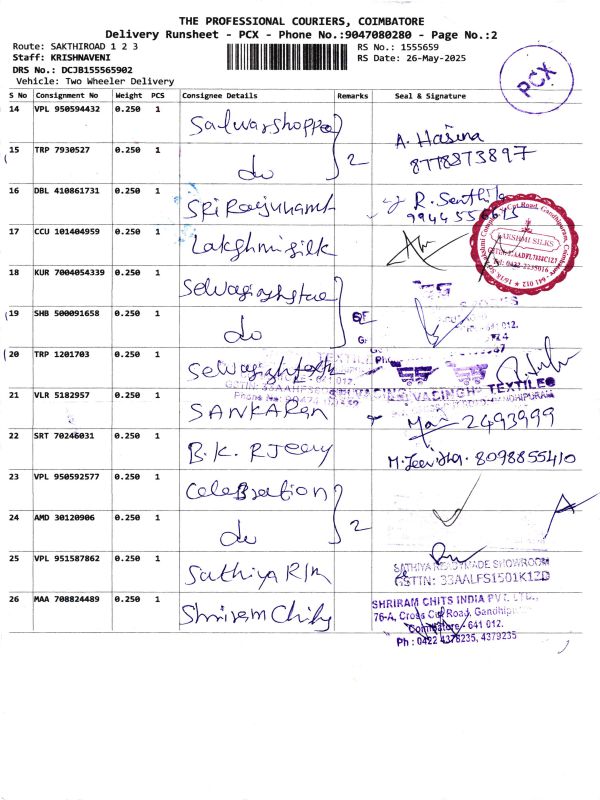 THE PROFESSIONAL COURIERS, COIMBATORE
Delivery Runsheet - PCX - Phone No.:9047080280 - Page No.:2
Route: SAKTHIROAD 1 2 3
RS No.: 1555659
Staff: KRISHNAVENI
RS Date: 26-May-2025
DRS No.: DCJB155565902
Vehicle: Two Wheeler Delivery
PCX
S No Consignment No Weight PCS Consignee Details Remarks Seal & Signature
14 VPL 950594432 0.250 1 Salwarshoppee
A. Hasina
15 TRP 7930527 0.250 1 do 2
16 DBL 410861731 0.250 1 R. Senthil
17 CCU 101404959 0.250 1 Lakshmi silk
LAKSHMI SILKS
18 KUR 7004054339 0.250 1
19 SHB 500091658 0.250 1 do
20 TRP 1201703 0.250 1
TEXTILES
21 VLR 5182957 0.250 1 SANKARAN 2493999
22 SRT 70246031 0.250 1 B.K. R Jeery M. Jeevitha. 8098855410
23 VPL 950592577 0.250 1 Celebration
24 AMD 30120906 0.250 1 do 2
25 VPL 951587862 0.250 1 Sathiya R/m
SATHIYA READYMADE SHOWROOM
GSTTN: 33AALFS1501K1ZD
26 MAA 708824489 0.250 1 Shriram Chits
SHRIRAM CHITS INDIA PVT. LTD.,
76-A, Cross Cut Road, Gandhipuram
Coimbatore - 641 012.
Ph : 0422 4378235, 4379235